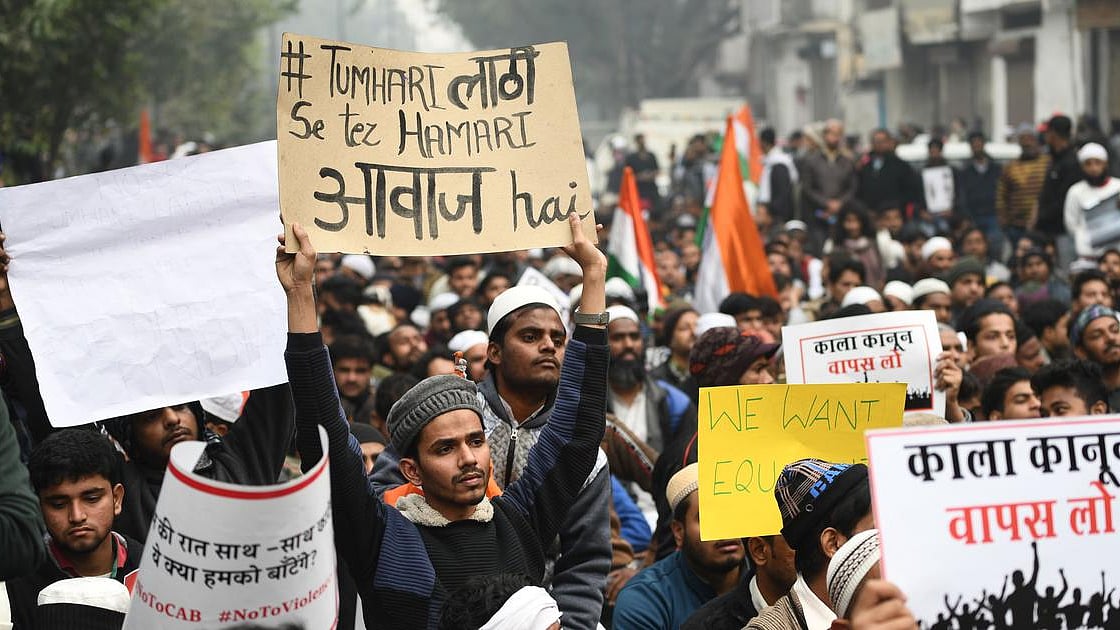 # TUMHARI लाठी
Se tez HAMARI
आवाज hai
काला कानून
वापस लो
WE WANT
काला कानून
वापस लो
की रात साथ - साथ
वे क्या हमको बाँटेंगे?
NoToCAB #NoToViolence